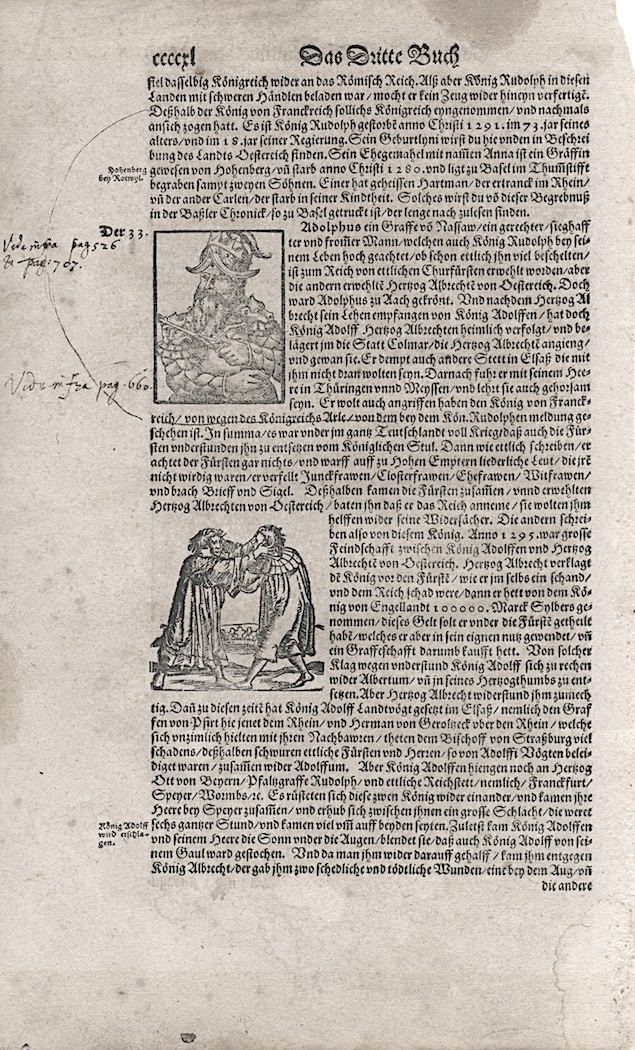 ccccxl
Das Dritte Buch
fiel dasselbig Königreich wider an das Römisch Reich. Alß aber König Rudolph in diesen
Landen mit schweren Händlen beladen war / mocht er kein Zeug wider hineyn verfertigē.
Deßhalb der König von Franckreich sollichs Königreich eyngenommen / vnd nachmals
ansich zogen hatt. Es ist König Rudolph gestorbē anno Christi 1291. im 73. jar seines
alters / vnd im 18. jar seiner Regierung. Sein Geburtlyni wirst du hie vnden in Beschrei
bung des Landts Oestereich finden. Sein Ehegemahel mit nam̃en Anna ist ein Gräffin
Hohenberg
bey Rotwyl.
gewesen von Hohenberg / vñ starb anno Christi 1280. vnd ligt zu Basel im Thumstifft
begraben sampt zweyen Söhnen. Einer hat geheissen Hartman / der ertranck im Rhein /
vñ der ander Carlen / der starb in seiner Kindtheit. Solches wirst du vō dieser Begrebnuß
in der Baßler Chronick / so zu Basel getruckt ist / der lenge nach zulesen finden.
Der 33.
Vide infra pag 526
& pag. 707.
Vide infra pag. 660.
Adolphus ein Graffe vō Nassaw / ein gerechter / sieghaff
ter vnd from̃er Mann / welchen auch König Rudolph bey sei-
nem Leben hoch geachtet / ob schon ettlich jhn viel beschelten /
ist zum Reich von ettlichen Churfürsten erwehlt worden / aber
die andern erwehltē Hertzog Albrechtē von Oestereich. Doch
ward Adolphus zu Aach gekrönt. Vnd nachdem Hertzog Al
brecht sein Lehen empfangen von König Adolffen / hat doch
König Adolff Hertzog Albrechten heimlich verfolgt / vnd be-
lägert jm die Statt Colmar / die Hertzog Albrechtē angieng /
vnd gewan sie. Er dempt auch andere Stett in Elsaß die mit
jhm nicht dran wolten seyn. Darnach fuhr er mit seinem Hee-
re in Thüringen vnnd Meyssen / vnd lehrt sie auch gehorsam
seyn. Er wolt auch angriffen haben den König von Franck-
reich / von wegen des Königreichs Arle / von dem bey dem Kön. Rudolphen meldung ge-
schehen ist. In summa / es war vnder jm gantz Teutschlandt voll Krieg / daß auch die Für-
sten vnderstunden jhn zu entsetzen vom Königlichen Stul. Dann wie ettlich schreiben / er
achtet der Fürsten gar nichts / vnd warff auff zu Hohen Emptern liederliche Leut / die jrē
nicht wirdig waren / er verfellt Junckfrawen / Closterfrawen / Ehefrawen / Witfrawen /
vnd brach Brieff vnd Sigel. Deßhalben kamen die Fürsten zusam̃en / vnnd erwehlten
Hertzog Albrechten von Oestereich / baten jhn daß er das Reich anneme / sie wolten jhm
helffen wider seine Widersächer. Die andern schrei-
ben also von diesem König. Anno 1295. war grosse
Feindschafft zwischen König Adolffen vnd Hertzog
Albrechtē von Oestereich. Hertzog Albrecht verklagt
dē König vor den Fürstē / wie er jm selbs ein schand /
vnd dem Reich schad were / dann er hett von dem Kö-
nig von Engellandt 100000. Marck Sylbers ge-
nommen / dieses Gelt solt er vnder die Fürstē getheilt
habē / welches er aber in sein eignen nutz gewendet / vñ
ein Graffeschafft darumb kaufft hett. Von solcher
Klag wegen vnderstund König Adolff sich zu rechen
wider Albertum / vñ jn seines Hertzogthumbs zu ent-
setzen. Aber Hertzog Albrecht widerstund jhm zumech
tig. Dañ zu diesen zeitē hat König Adolff Landtvögt gesetzt im Elsaß / nemlich den Graf
fen von Pfirt hie jenet dem Rhein / vnd Herman von Geroltzeck vber den Rhein / welche
sich vnzimlich hielten mit jhren Nachbawren / theten dem Bischoff von Straßburg viel
schadens / deßhalben schwuren ettliche Fürsten vnd Herren / so von Adolffi Vögten belei-
diget waren / zusam̃en wider Adolffum. Aber König Adolffen hiengen noch an Hertzog
Ott von Beyern / Pfaltzgraffe Rudolph / vnd ettliche Reichstett / nemlich / Franckfurt /
Speyer / Wormbs / rc. Es rüsteten sich diese zwen König wider einander / vnd kamen jhre
Heere bey Speyer zusam̃en / vnd erhub sich zwischen jhnen ein grosse Schlacht / die weret
König Adolff
wird erschla-
gen.
sechs gantzer Stund / vnd kamen viel vm̃ auff beyden seyten. Zuletst kam König Adolffen
vnd seinem Heere die Sonn vnder die Augen / blendet sie / daß auch König Adolff von sei-
nem Gaul ward gestochen. Vnd da man jhm wider darauff gehalff / kam jhm entgegen
König Albrecht / der gab jhm zwo schedliche vnd tödtliche Wunden / eine bey dem Aug / vñ
die andere